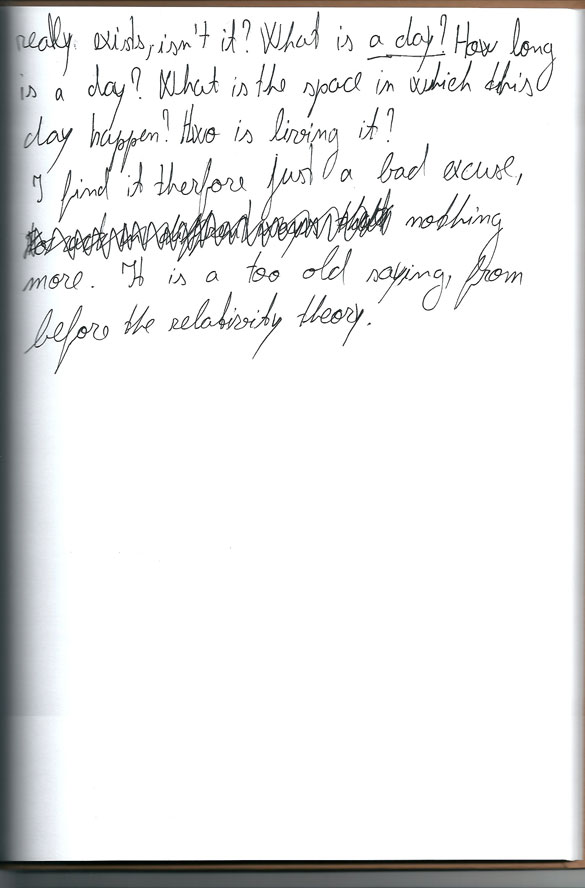 really exists, isn't it? What is a day? How long
is a day? What is the space in which this
day happen? Hwo is living it?
I find it therfore just a bad excuse,
nothing
more. It is a too old saying, from
before the relativity theory.